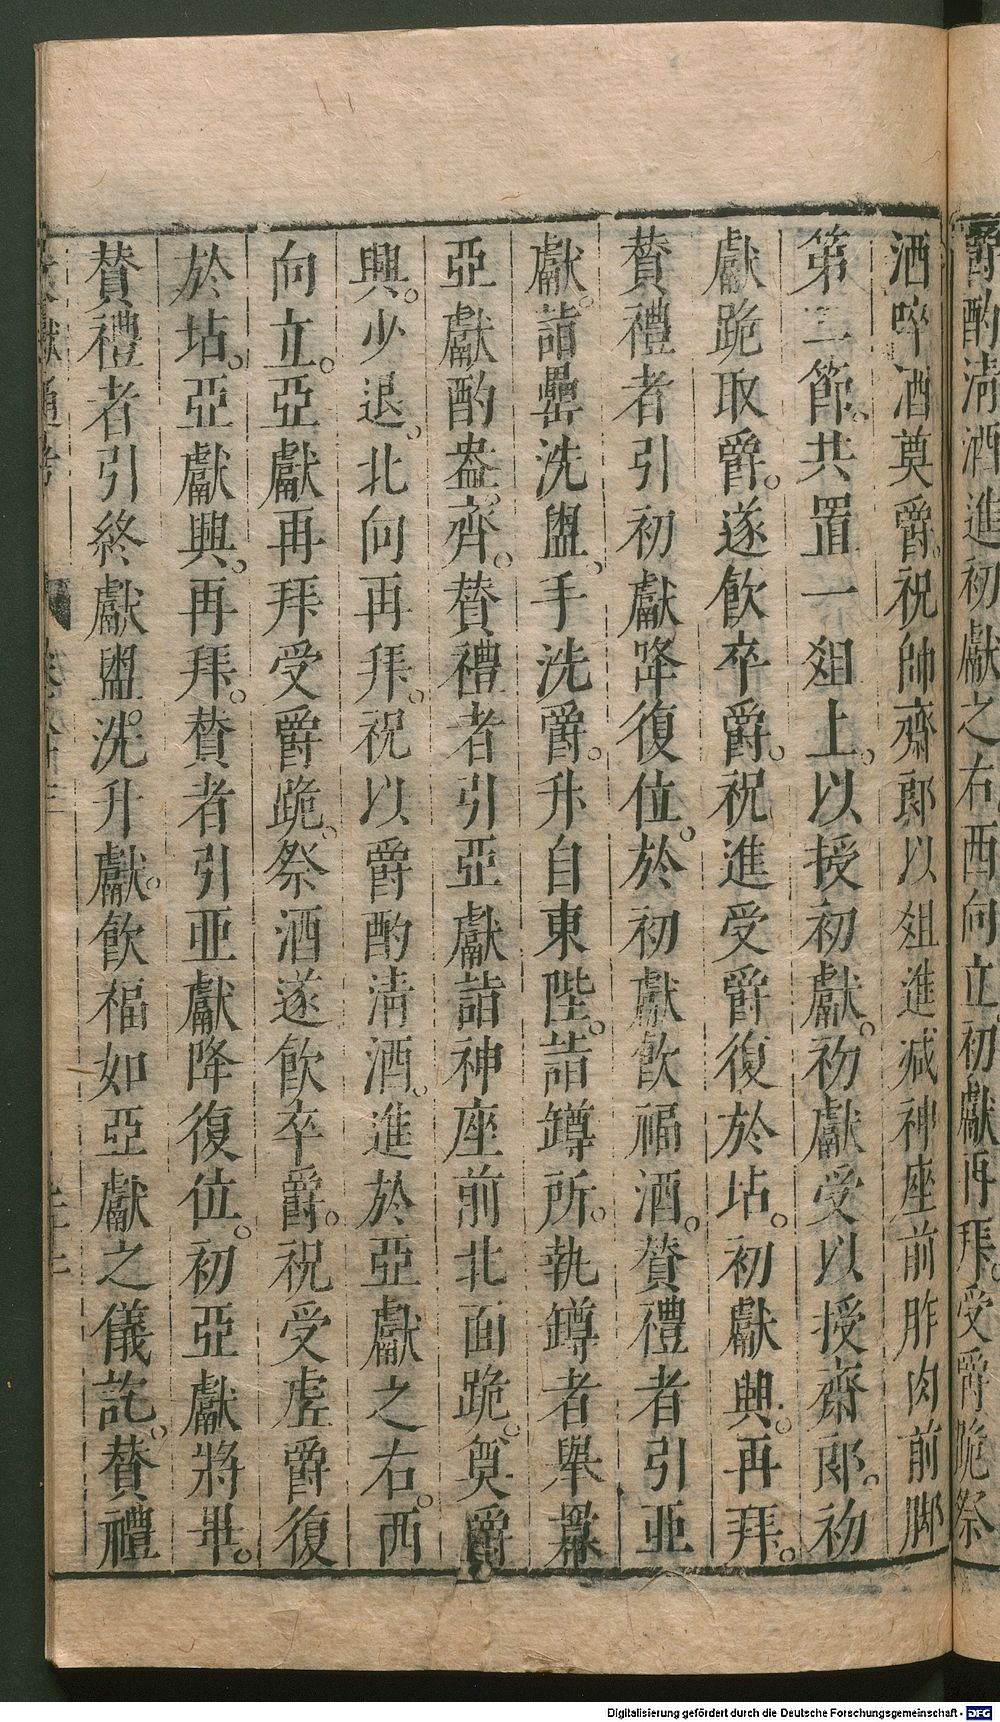 爵酌清酒進初獻之右西向立初獻再拜。受爵跪祭
酒啐酒奠爵。祝帥齋郎以俎進减神座前胙肉前脚
第二節。共置一俎上。以授初獻。初獻受以授齋郎。初
獻跪取爵。遂飲卒爵。祝進受爵復於坫。初獻興。再拜。
賛禮者引初獻降復位。於初獻飲福酒。賛禮者引亞
獻。詣罍洗盥。手洗爵。升自東陛。詣罇所。執罇者舉羃
亞獻酌盎齊。賛禮者引亞獻詣神座前北面跪。奠爵
興。少退。北向再拜。祝以爵酌清酒。進於亞獻之右。西
向立。亞獻再拜受爵跪。祭酒遂飲卒爵。祝受虗爵復
於坫。亞獻興。再拜。賛者引亞獻降復位。初亞獻將畢。
賛禮者引終獻盥。洗升獻。飲福如亞獻之儀訖。賛禮
文獻通考 卷八十三 二十二
Digitalisierung gefördert durch die Deutsche Forschungsgemeinschaft - DFG